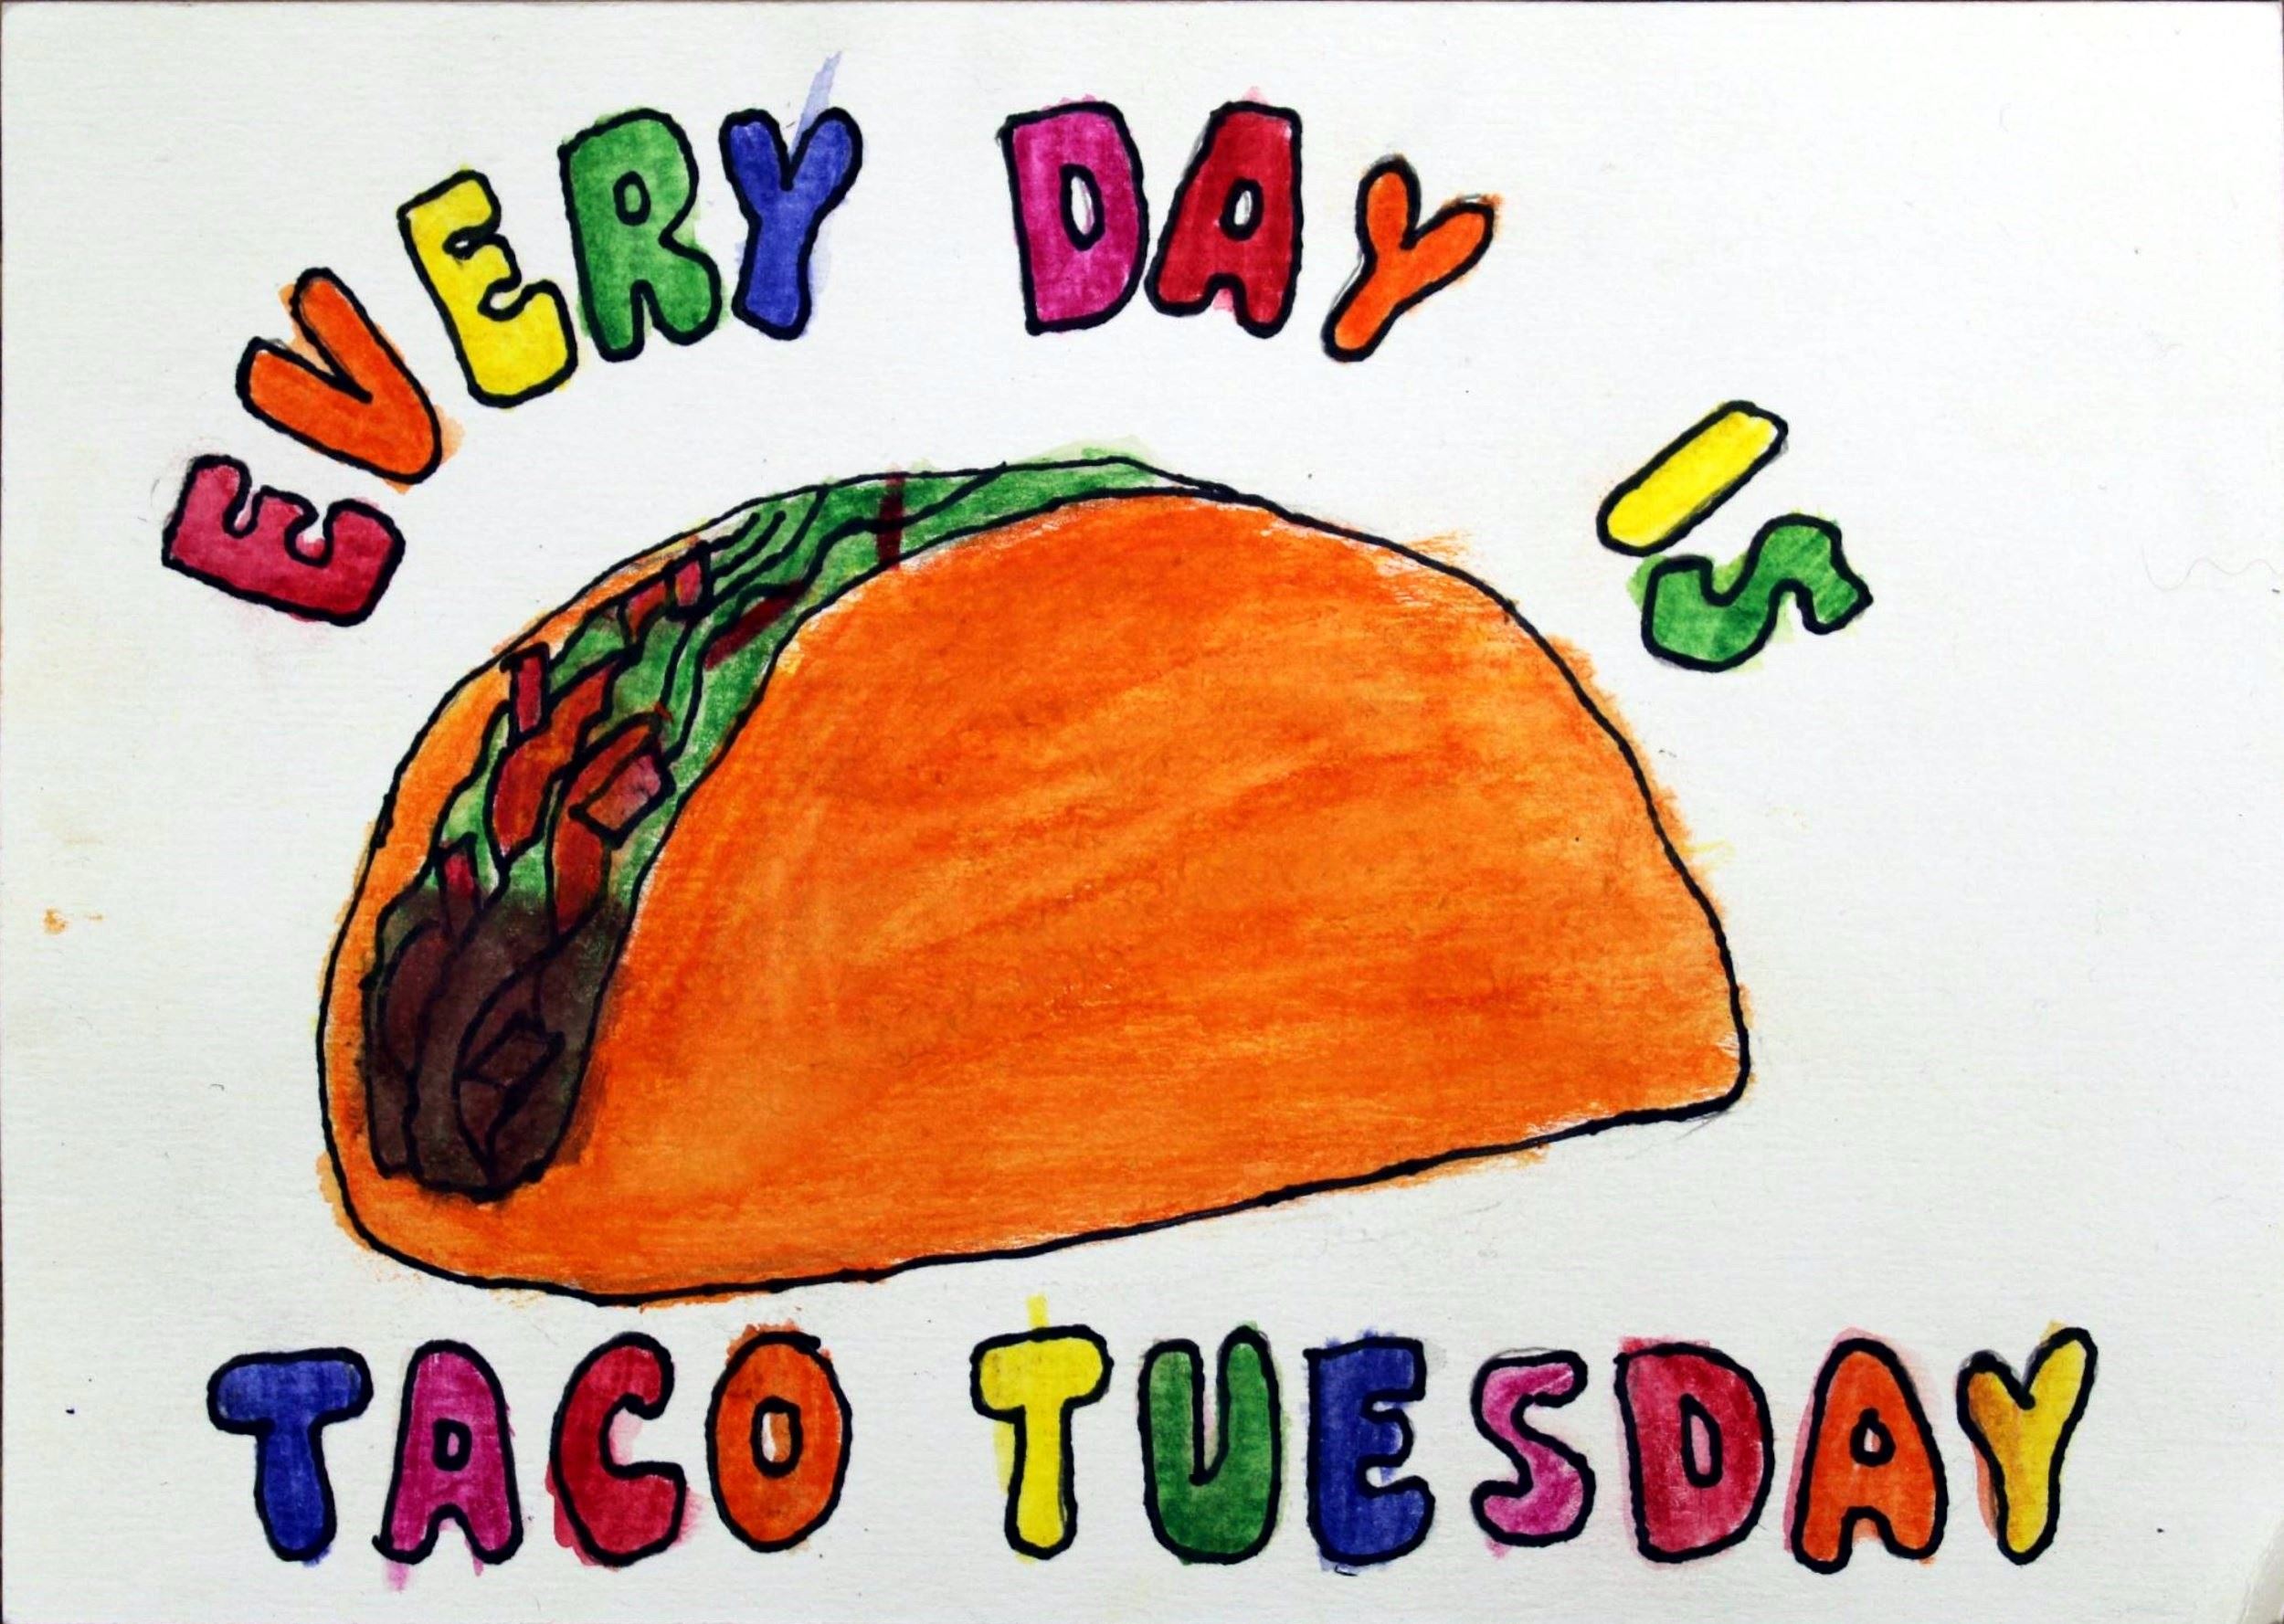 EVERY DAY IS
TACO TUESDAY